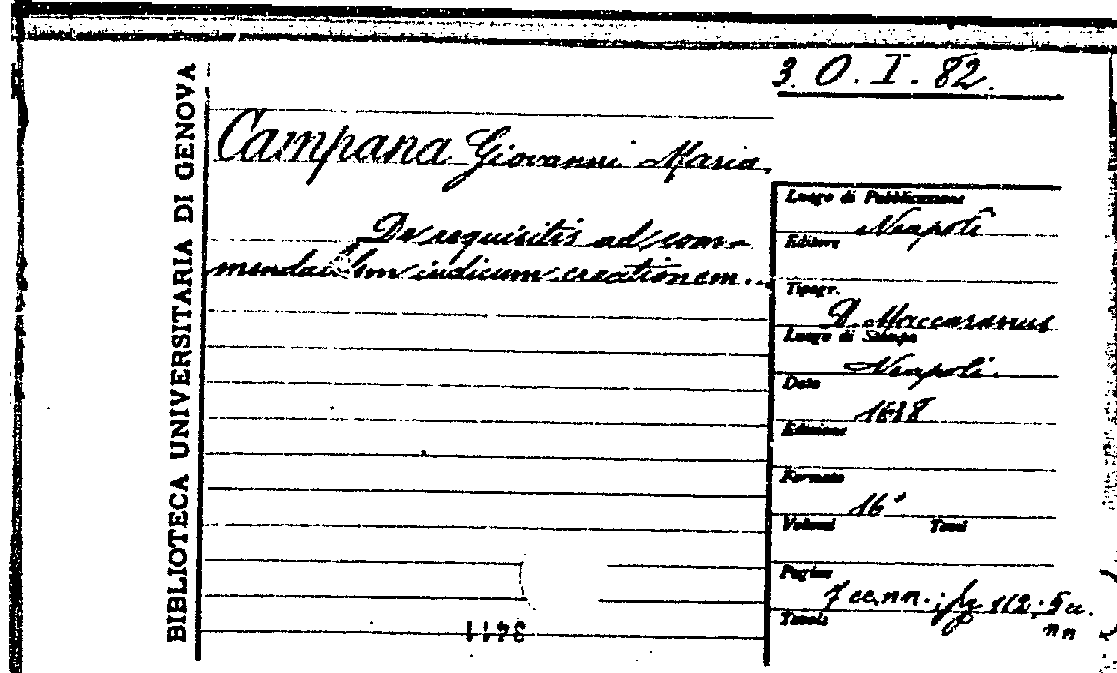 3. O. I. 82.
BIBLIOTECA UNIVERSITARIA DI GENOVA
Campana Giovanni Maria
De requisitis ad com-
mendabilem iudicum creationem...
Luogo di Pubblicazione
Neapoli
Editore
Tipogr.
D. Maccaranus
Luogo di Stampa
Neapoli
Data
Edizione
Formato
16°
Volumi Tomi
Pagine
7 cc. nn.; pp 112; 5 cc.
nn
Tavole
3411